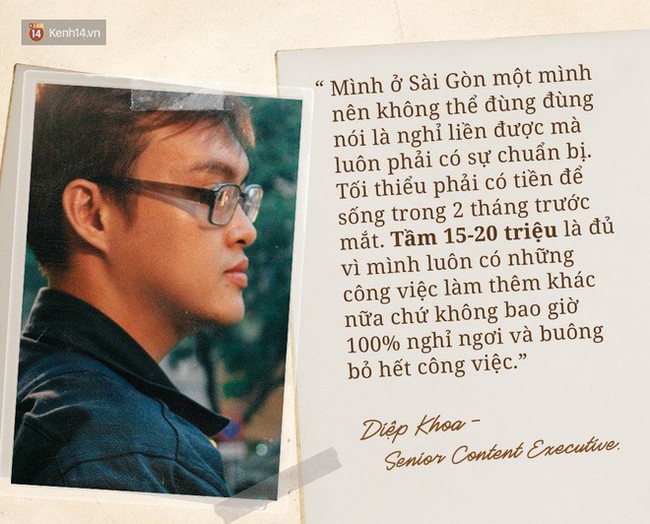 14 Kenh14.vn
“ Mình ở Sài Gòn một mình
nên không thể đùng đùng
nói là nghỉ liền được mà
luôn phải có sự chuẩn bị.
Tối thiểu phải có tiền để
sống trong 2 tháng trước
mắt. Tầm 15-20 triệu là đủ
vì mình luôn có những
công việc làm thêm khác
nữa chứ không bao giờ
100% nghỉ ngơi và buông
bỏ hết công việc.”
Diệp Khoa –
Senior Content Executive.